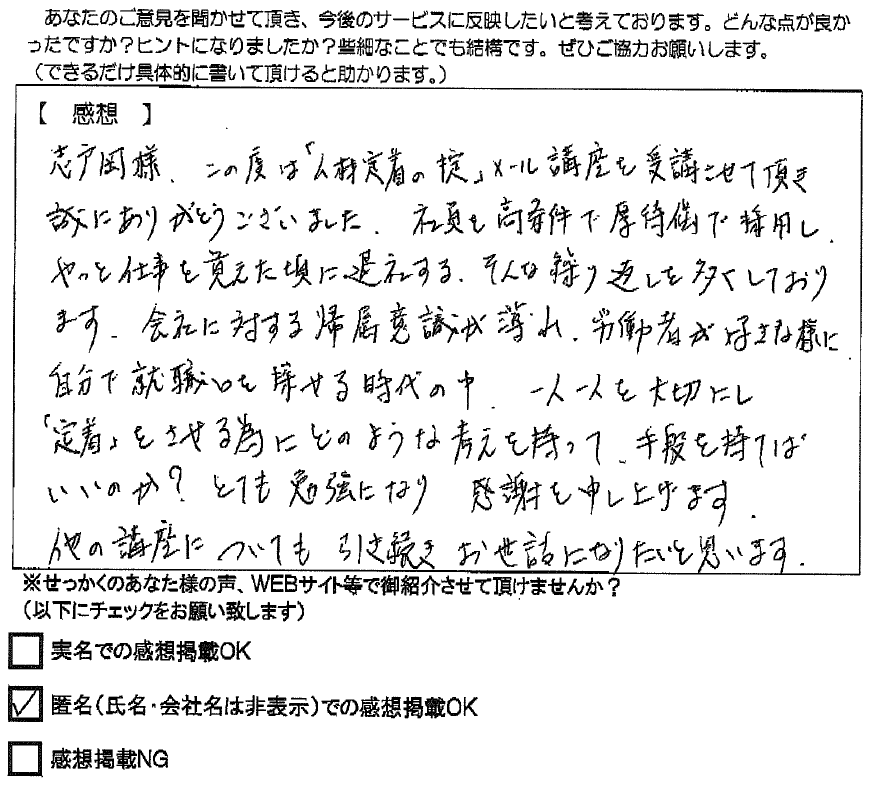 あなたのご意見を聞かせて頂き、今後のサービスに反映したいと考えております。どんな点が良か
ったですか？ヒントになりましたか？些細なことでも結構です。ぜひご協力お願いします。
（できるだけ具体的に書いて頂けると助かります。）
【 感想 】
志戸岡様、この度は「人材定着の掟」メール講座を受講させて頂き
誠にありがとうございました。社員を高条件で厚待偶で採用し、
やっと仕事を覚えた頃に退社する、そんな繰り返しを多くしており
ます。会社に対する帰属意識が薄れ、労働者が好きな様に
自分で就職口を探せる時代の中、一人一人を大切にし
「定着」をさせる為にどのような考えを持って、手段を持てば
いいのか？とても勉強になり 感謝を申し上げます。
他の講座についても引き続きお世話になりたいと思います。
※せっかくのあなた様の声、WEBサイト等で御紹介させて頂けませんか？
（以下にチェックをお願い致します）
実名での感想掲載OK
匿名（氏名・会社名は非表示）での感想掲載OK
感想掲載NG